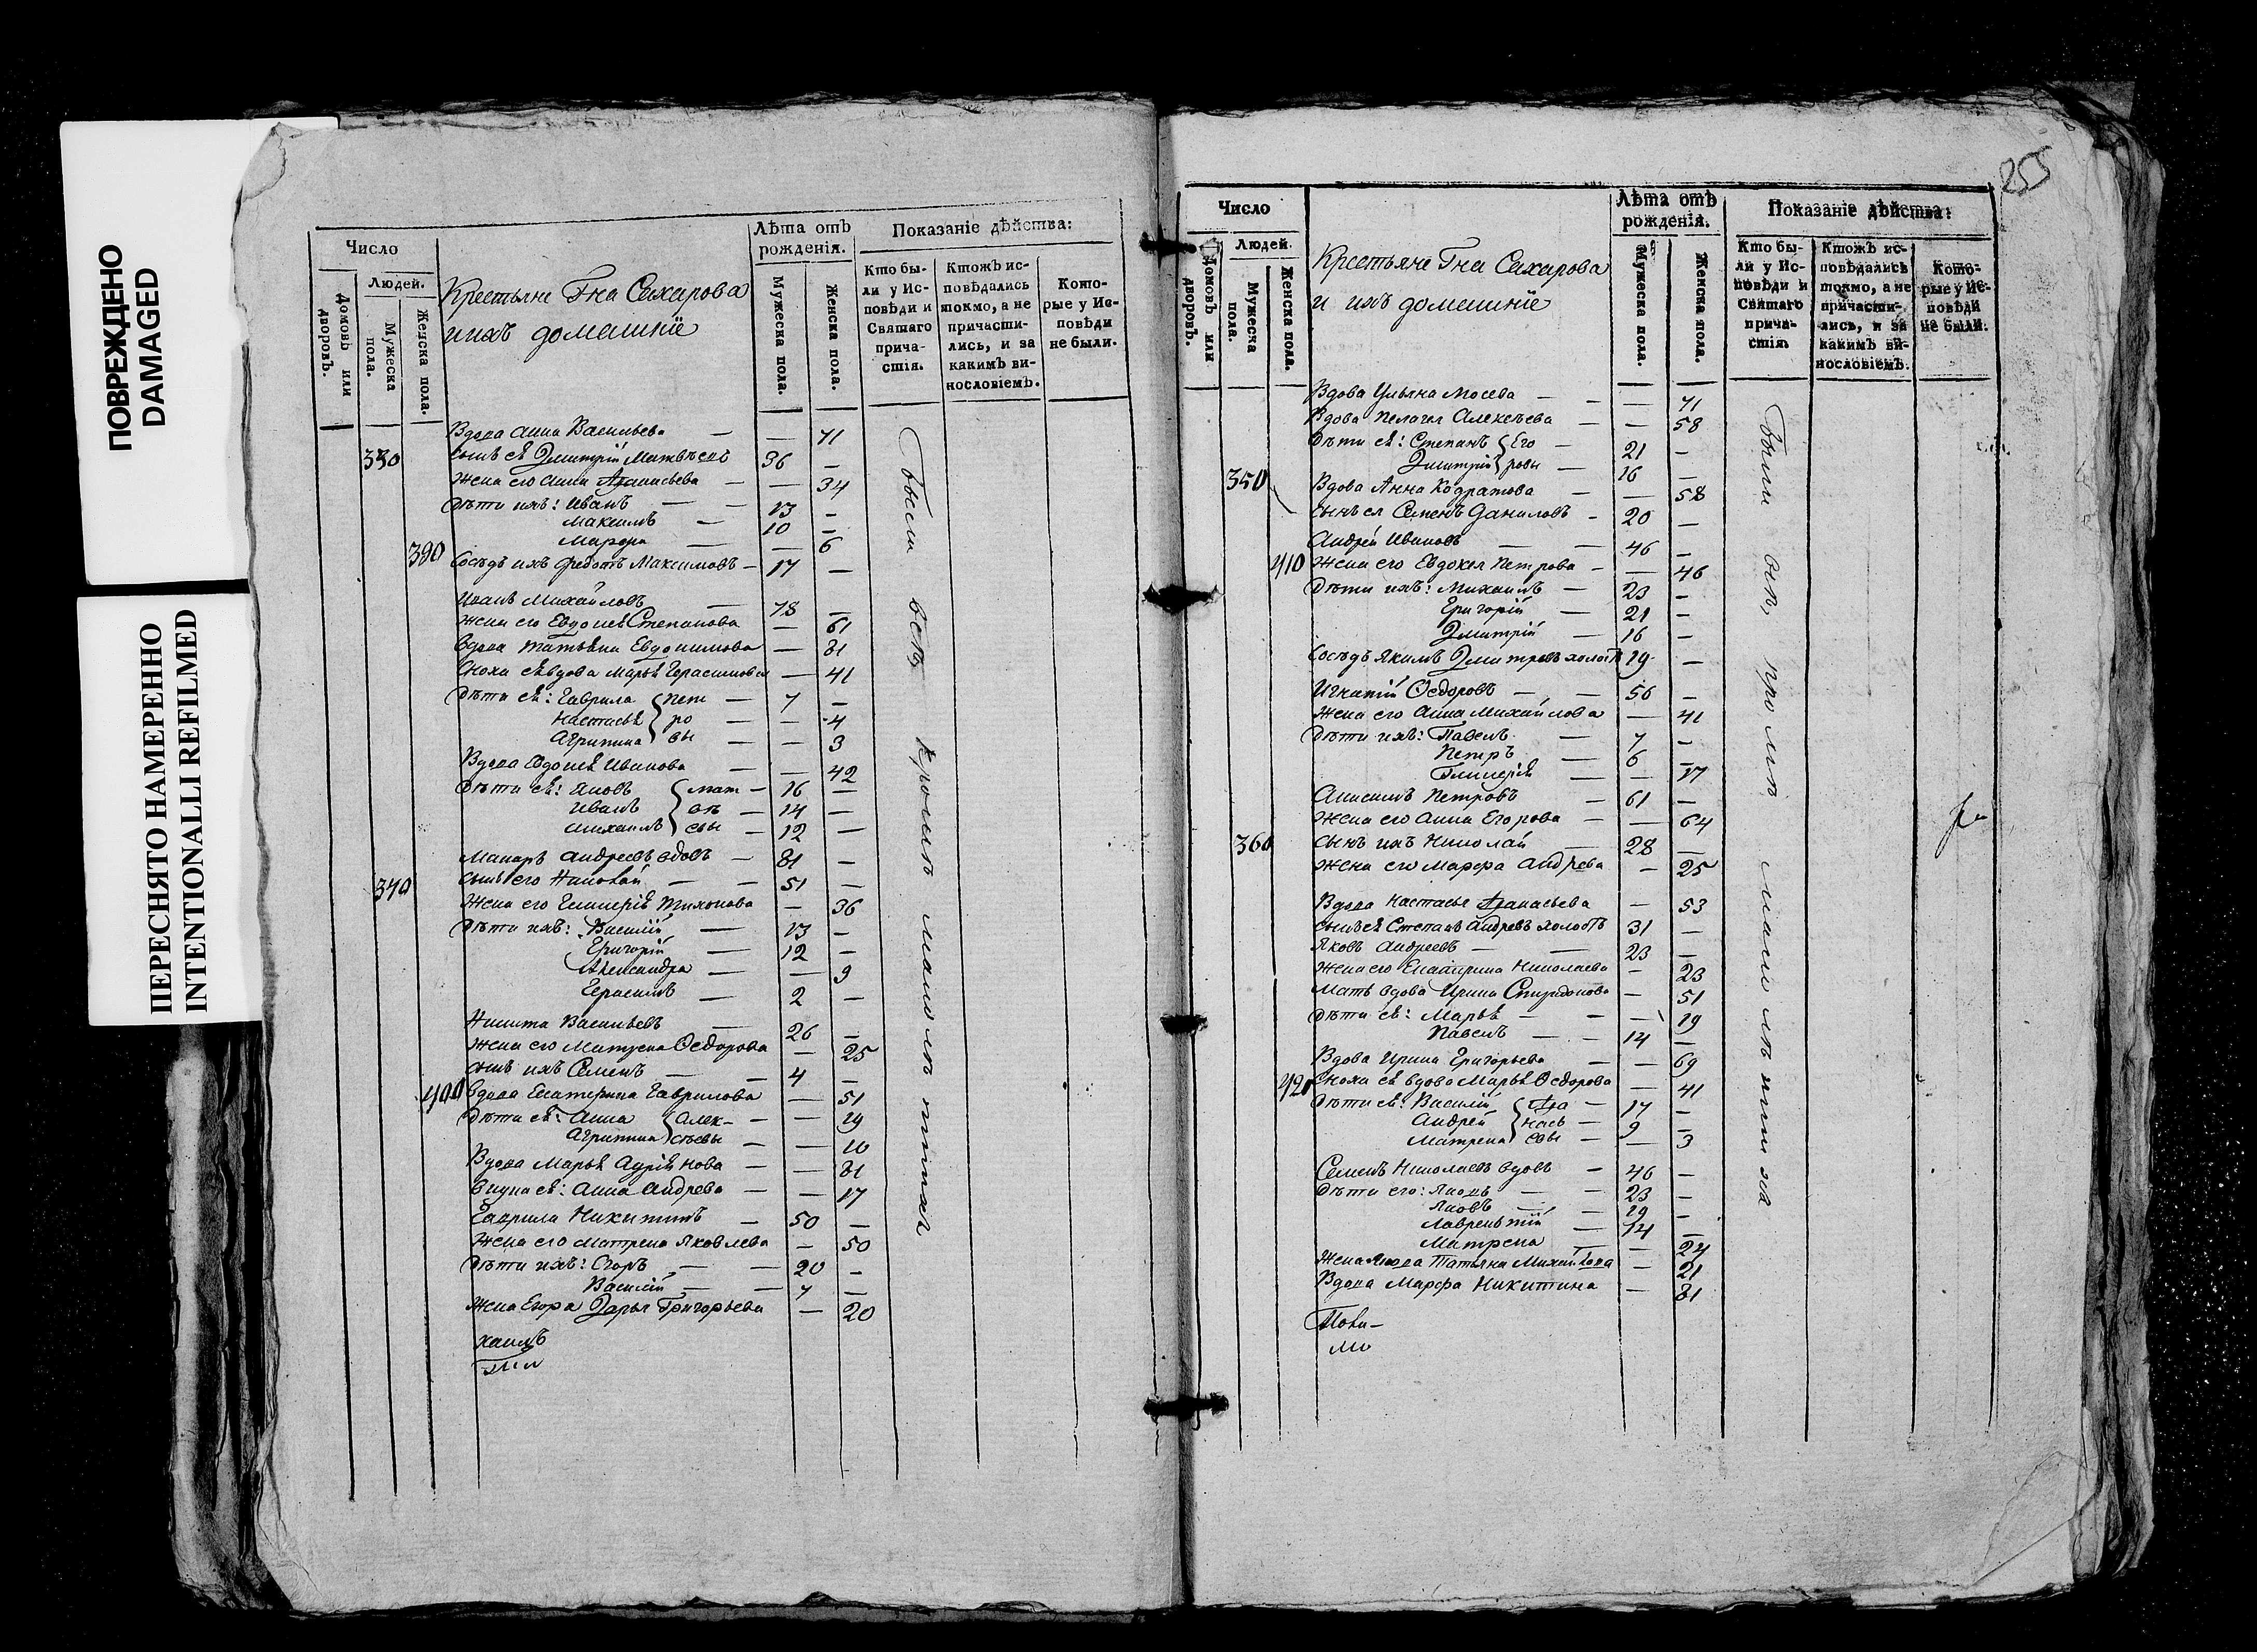 ПОВРЕЖДЕНО
DAMAGED
ПЕРЕСНЯТО НАМЕРЕННО
INTENTIONALLI REFILMED
Число
Людей.
Домовъ или дворовъ.
Мужеска пола.
Женска пола.
Крестьяне Гна Сахарова
и ихъ домашніе
Лѣта отъ рожденія.
Мужеска пола.
Женска пола.
Показаніе дѣйства:
Кто были у Исповѣди и Святаго причастія.
Ктожъ исповѣдались токмо, а не причастились, и за какимъ винословіемъ.
Которые у Исповѣди не были.
Вдова Анна Васильева — — 71
Сынъ ея Дмитрій Матвѣевъ 36 —
Жена его Анна Афанасьева — — 34
Дѣти ихъ: Иванъ — 13 —
Максимъ — 10 —
390 Марфа — — 6
Сосѣдъ ихъ Федотъ Максимовъ — 17 —
Иванъ Михайловъ — 78 —
Жена его Степанова — 61
Вдова Татьяна Евдокимова — 81
Сноха ея вдова Марья Герасимова — 41
Дѣти ея: Гаврила Пет — 7 —
Настасья ро — — 4
Агрипина вы — — 3
Вдова Иванова — — 42
Дѣти ея: Яковъ мат — 16 —
Иванъ вѣ — 14 —
Михаилъ евы — 12 —
Макаръ Андреевъ вдовъ — 81 —
370 сынъ его Николай — 51 —
Жена его Гликерія Тихонова — 36
Дѣти ихъ: Василій — 13 —
Григорій — 12 —
Александра — — 9
Герасимъ — 2 —
Никита Васильевъ — 26 —
Жена его Федорова — 25
сынъ ихъ Семенъ — 4 —
400 Вдова Екатерина Гаврилова — 51
Дѣти ея: Анна Алек- — — 19
Агрипина сѣевы — — 10
Вдова Марья — — 81
Внука ея: Анна Андрева — — 17
Гаврила Никитинъ — 50 —
Жена его Матрена Яковлева — 50
Дѣти ихъ: Егоръ — 20 —
Василій — 7 —
Жена Егора Дарья Григорьева — 20
были всѣ кромѣ малолѣтнихъ
255
Число
Людей.
Домовъ или дворовъ.
Мужеска пола.
Женска пола.
Крестьяне Гна Сахарова
и ихъ домашніе
Лѣта отъ рожденія.
Мужеска пола.
Женска пола.
Показаніе дѣйства:
Кто были у Исповѣди и Святаго причастія.
Ктожъ исповѣдались токмо, а не причастились, и за какимъ винословіемъ.
Которые у Исповѣди не были.
Вдова Ульяна Мосева — — 71
Вдова Пелагея Алексѣева — — 58
Дѣти ея: Степанъ Его — 21 —
Дмитрій ровы — 16 —
350 Вдова Анна Кодратова — — 58
Сынъ ея Семенъ Даниловъ — 20 —
Андрей Ивановъ — 46 —
410 Жена его Евдокея Петрова — — 46
Дѣти ихъ: Михаилъ — 23 —
Григорій — 21 —
Дмитрій — 16 —
Сосѣдъ Якимъ Дмитревъ холостъ 19 —
Игнатій Федоровъ — 56 —
Жена его Анна Михайлова — 41
Дѣти ихъ: Павелъ — 7 —
Петръ — 6 —
Гликерія — — 17
Анисимъ Петровъ — 61 —
Жена его Анна Егорова — — 64
360 сынъ ихъ Николай — 28 —
Жена его Марфа Андрева — 25
Вдова Настасья Афанасьева — 53
сынъ ея Степанъ Андревъ холостъ 31 —
Яковъ Андреевъ — 23 —
Жена его Екатерина Николаева — 23
Мать вдова Ирина Спиридонова — 51
Дѣти ея: Марья — — 19
Павелъ — 14 —
Вдова Ирина Григорьева — — 69
420 Сноха ея вдова Марья Федорова — 41
Дѣти ея: Василій Афа — 17 —
Андрей нась — 9 —
Матрена евы — — 3
Семенъ Николаевъ вдовъ — 46 —
Дѣти его: — 23 —
Яковъ — 19 —
Лаврентій — 14 —
Матрена — — 24
Жена Татьяна Михайлова — 21
Вдова Марфа Никитина — 81
были всѣ, кромѣ малолѣтнихъ